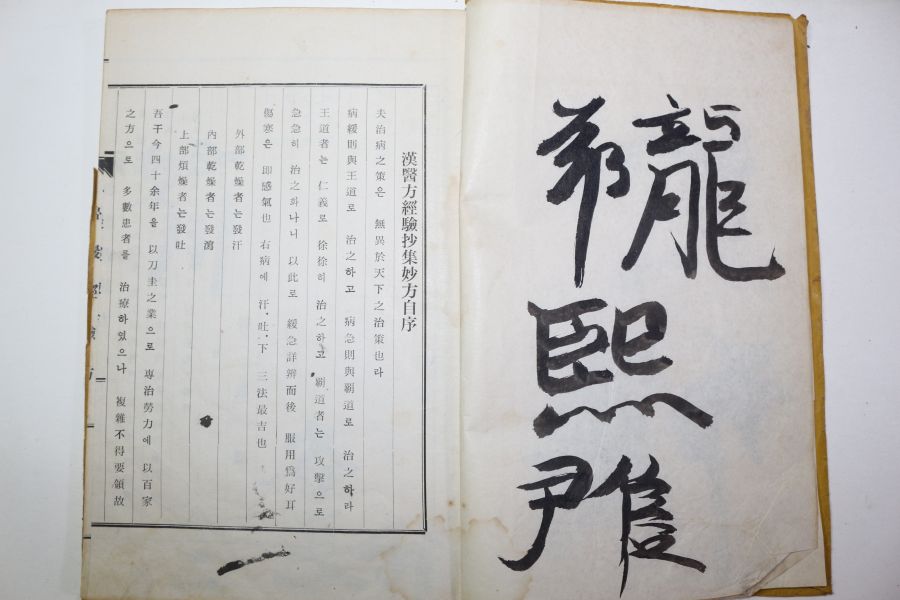 龍
熙
尹
漢醫方經驗抄集妙方自序
夫治病之策은 無異於天下之治策也라
病緩則與王道로 治之하고 病急則與覇道로 治之하라
王道者는 仁義로 徐徐히 治之하고 覇道者는 攻擊으로
急急히 治之하나니 以此로 緩急詳辨而後 服用爲好耳
傷寒은 即感氣也 右病에 汗,吐,下 三法最吉也
外部乾燥者는發汗
內部乾燥者는發瀉
上部煩燥者는發吐
吾干今四十余年을 以刀圭之業으로 專治勞力에 以百家
之方으로 多數患者을 治療하였으나 複雜不得要領故